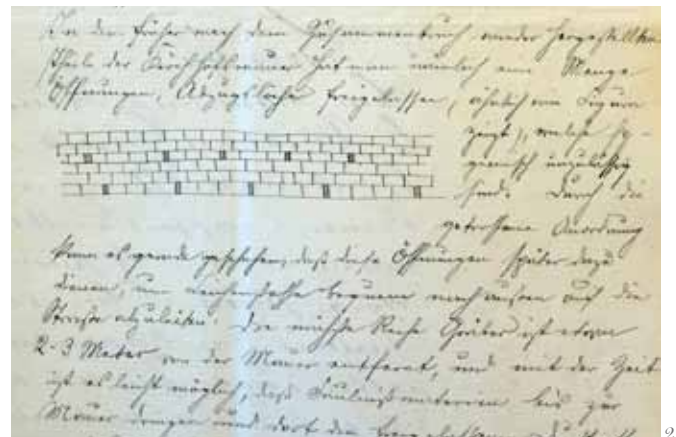 In den früher nach dem Zusammenbruch wieder hergestellten
Theile der Kirchhofmauer hat man nämlich eine Menge
Öffnungen, Abzugslöcher freigelassen, ähnlich wie Figura
zeigt, welche hy-
gienisch unzulässig
sind. Durch die
getroffene Anordnung
kann es gerade geschehen, daß diese Öffnungen später dazu
dienen, um Leichenstoffe bequem nach aussen auf die
Strasse abzuleiten. Die nächste Reihe Gräber ist etwa
2-3 Meter von der Mauer entfernt, und mit der Zeit
ist es leicht möglich, dass Fäulnißmaterien bis zur
Mauer dringen und dort den freigelassenen